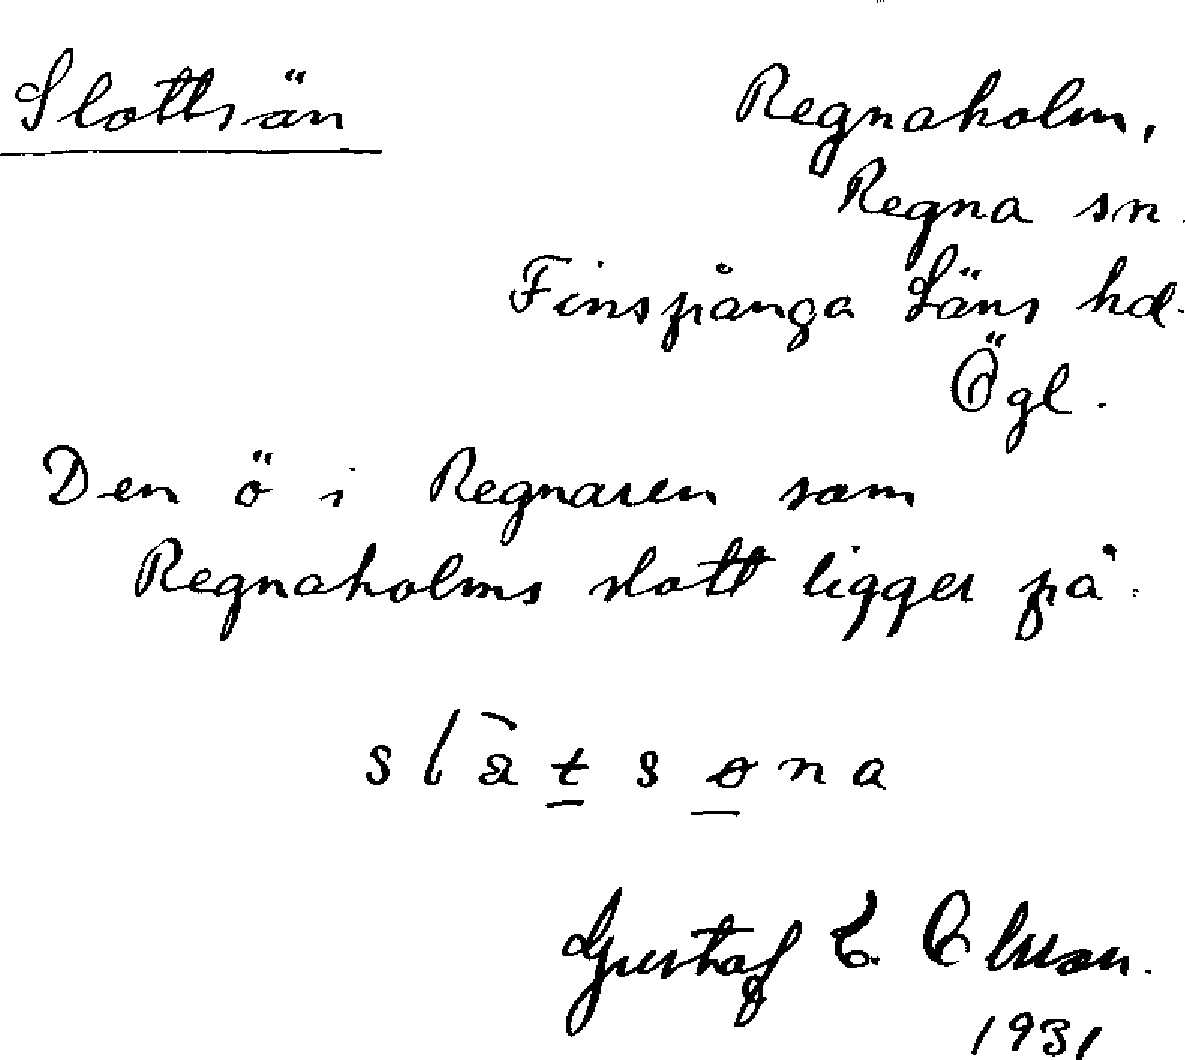 Slottsön
Regnaholm,
Regna sn.
Finspånga Läns hd.
Ögl.
Den ö i Regnaren som
Regnaholms slott ligger på.
slàtsøna
Gustaf
1931